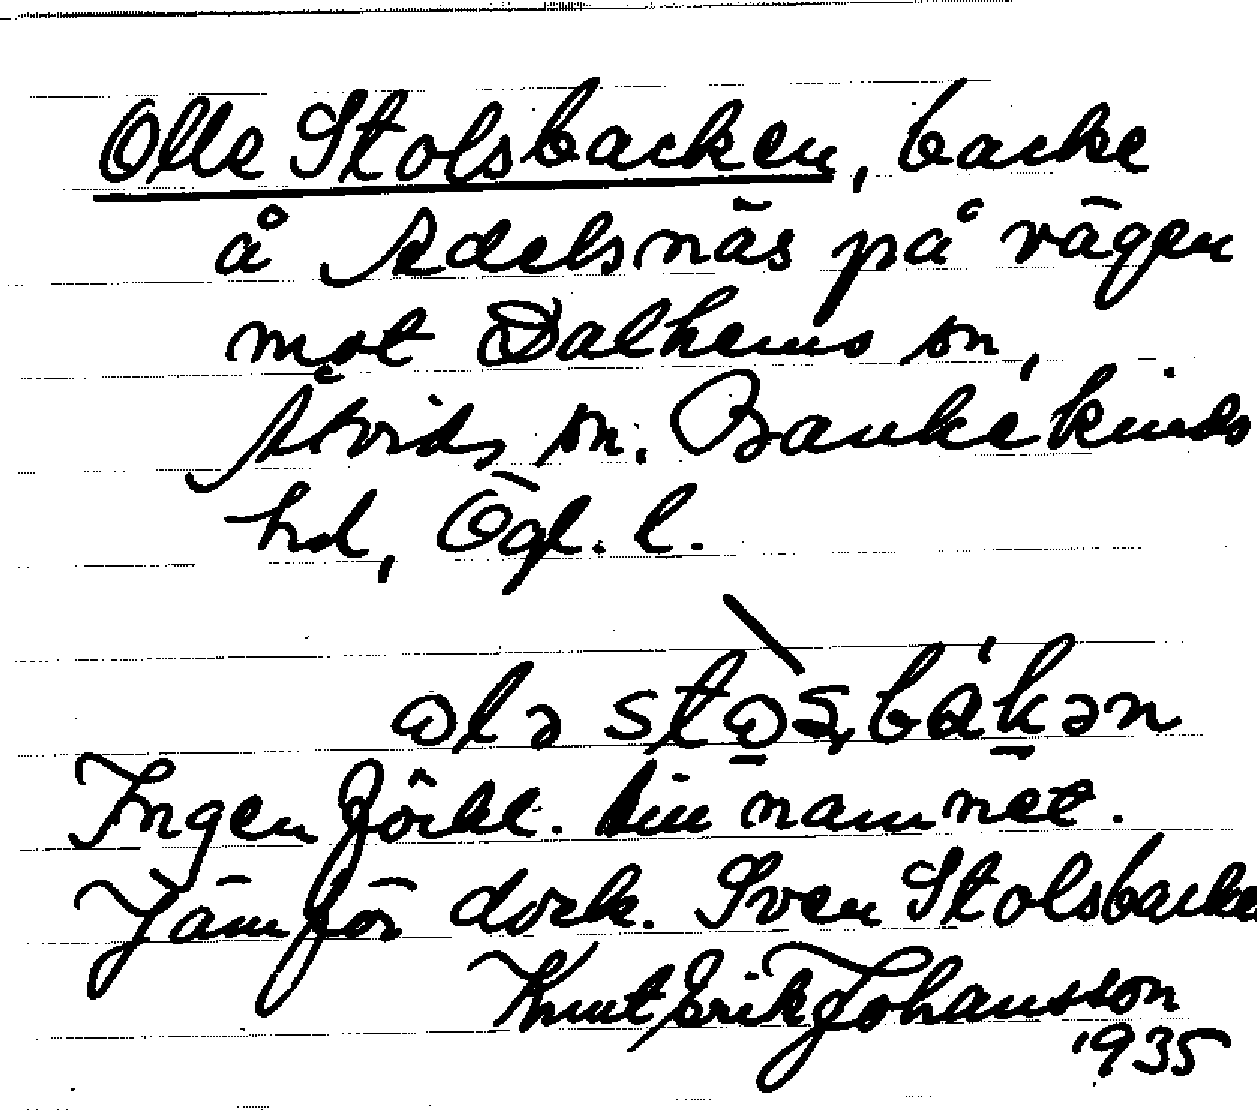 Olle Stolsbacken, backe
å Adelsnäs på vägen
mot Dalhems sn,
Åtvids sn. Bankekinds
hd, Ögl. l.
Ingen förkl. till namnet.
Jämför dock. Sven Stolsbacke
Knut Erik Johansson
1935